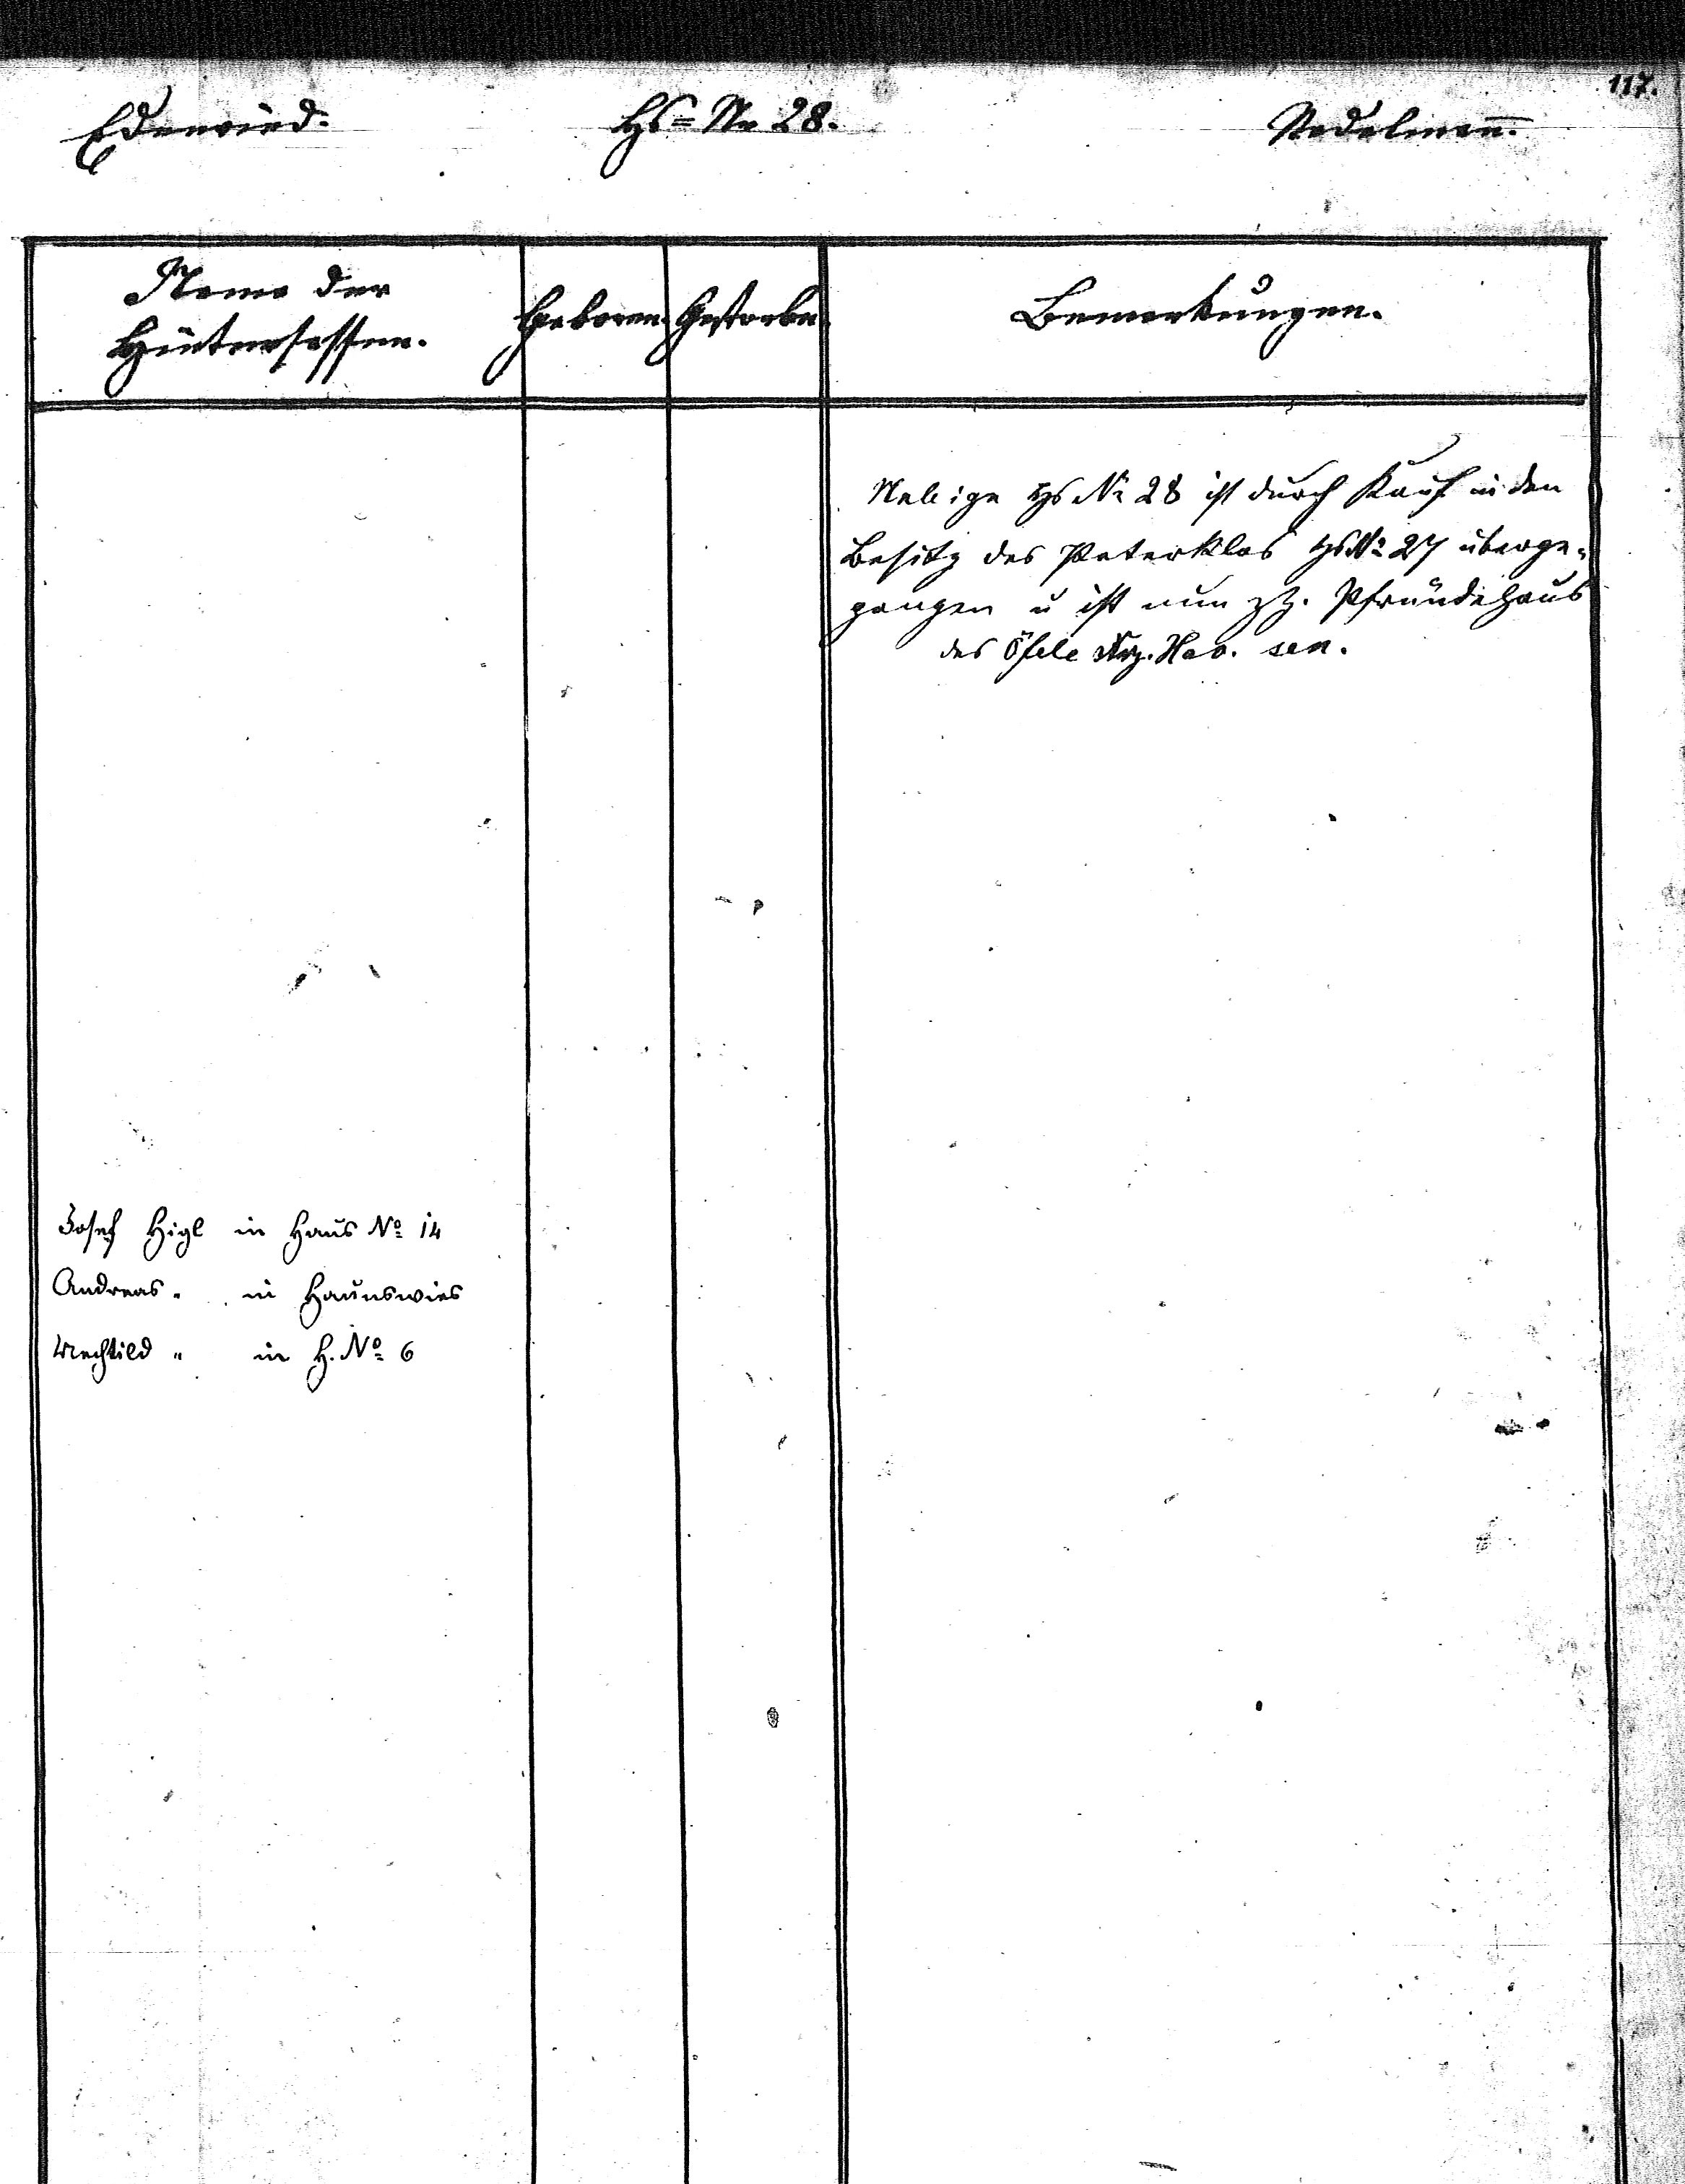 117.
Edenried.
Hs=Nr 28.
Stadelmañ.
Name der
Hintersassen.
Geboren.
Gestorben.
Bemerkungen.
Nebige Hs Nr 28 ist durch Kauf in den
Besitz des Peterklas Hs Nº 27 überge-
gangen u ist nun zZ. Pfründehaus
des Öfele Xav. sen.
Josef Higl in Haus Nº 14
Andreas " in Haunswies
Mechtild " in H. Nº 6